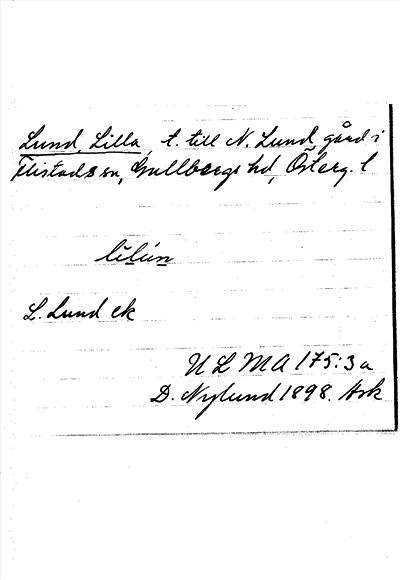 Lund, Lilla, t. till N. Lund, gård i
Flistads sn, Gullbergs hd, Österg. l
lìlún
L. Lund ek
ULMA 175:3a
D. Nylund 1898. Ask